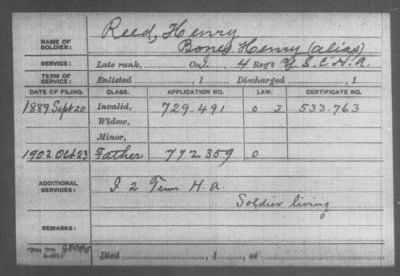 NAME OF SOLDIER: Reed, Henry
Bond, Henry (alias)
SERVICE: Late rank, Co. I, 4 Reg't U.S.C.H.A.
TERM OF SERVICE: Enlisted , 1 Discharged , 1
DATE OF FILING. CLASS. APPLICATION NO. LAW. CERTIFICATE NO.
1889 Sept 20 Invalid, 729.491 533.763
Widow,
Minor,
1902 Oct 23 Father 772359 0
ADDITIONAL SERVICES: I 2 Tenn H.A.
Soldier living
REMARKS:
Died , 1 , at